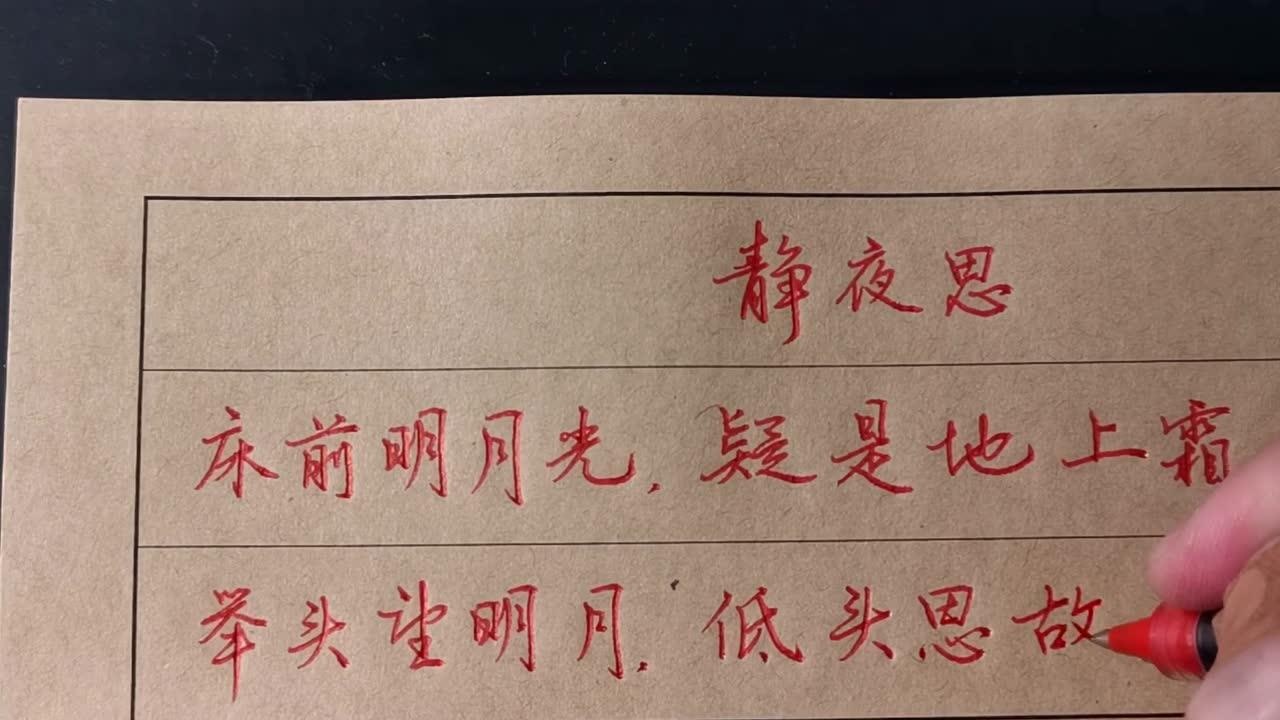 静夜思
床前明月光,疑是地上霜
举头望明月,低头思故